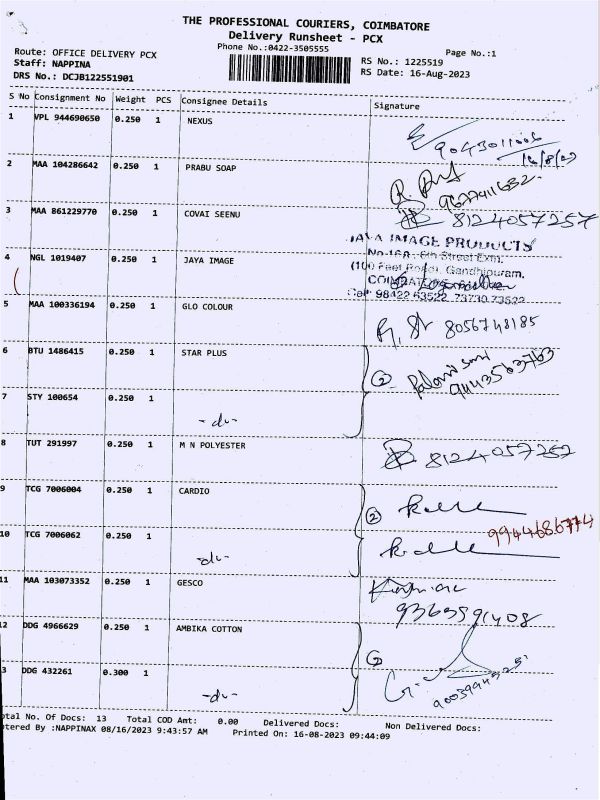 THE PROFESSIONAL COURIERS, COIMBATORE
Delivery Runsheet - PCX
Phone No.:0422-3505555
Page No.:1
Route: OFFICE DELIVERY PCX
RS No.: 1225519
Staff: NAPPINA
RS Date: 16-Aug-2023
DRS No.: DCJB122551901
S No Consignment No Weight PCS Consignee Details Signature
1 VPL 944690650 0.250 1 NEXUS
16/8/23
2 MAA 104286642 0.250 1 PRABU SOAP
3 MAA 861229770 0.250 1 COVAI SEENU 8124057257
4 NGL 1019407 0.250 1 JAYA IMAGE
JAYA IMAGE PRODUCTS
6th Street Extn,
(100 Feet Road), Gandhipuram,
Cell: 98422 63522, 73730 73522
5 MAA 100336194 0.250 1 GLO COLOUR
8056748185
6 BTU 1486415 0.250 1 STAR PLUS
2
9443563763
7 STY 100654 0.250 1
-do-
8 TUT 291997 0.250 1 M N POLYESTER
8124057257
9 TCG 7006004 0.250 1 CARDIO
2
9944686774
10 TCG 7006062 0.250 1
-do-
11 MAA 103073352 0.250 1 GESCO
9363591408
12 DDG 4966629 0.250 1 AMBIKA COTTON
3 DDG 432261 0.300 1
-do-
otal No. Of Docs: 13 Total COD Amt: 0.00 Delivered Docs: Non Delivered Docs:
ntered By :NAPPINAX 08/16/2023 9:43:57 AM Printed On: 16-08-2023 09:44:09